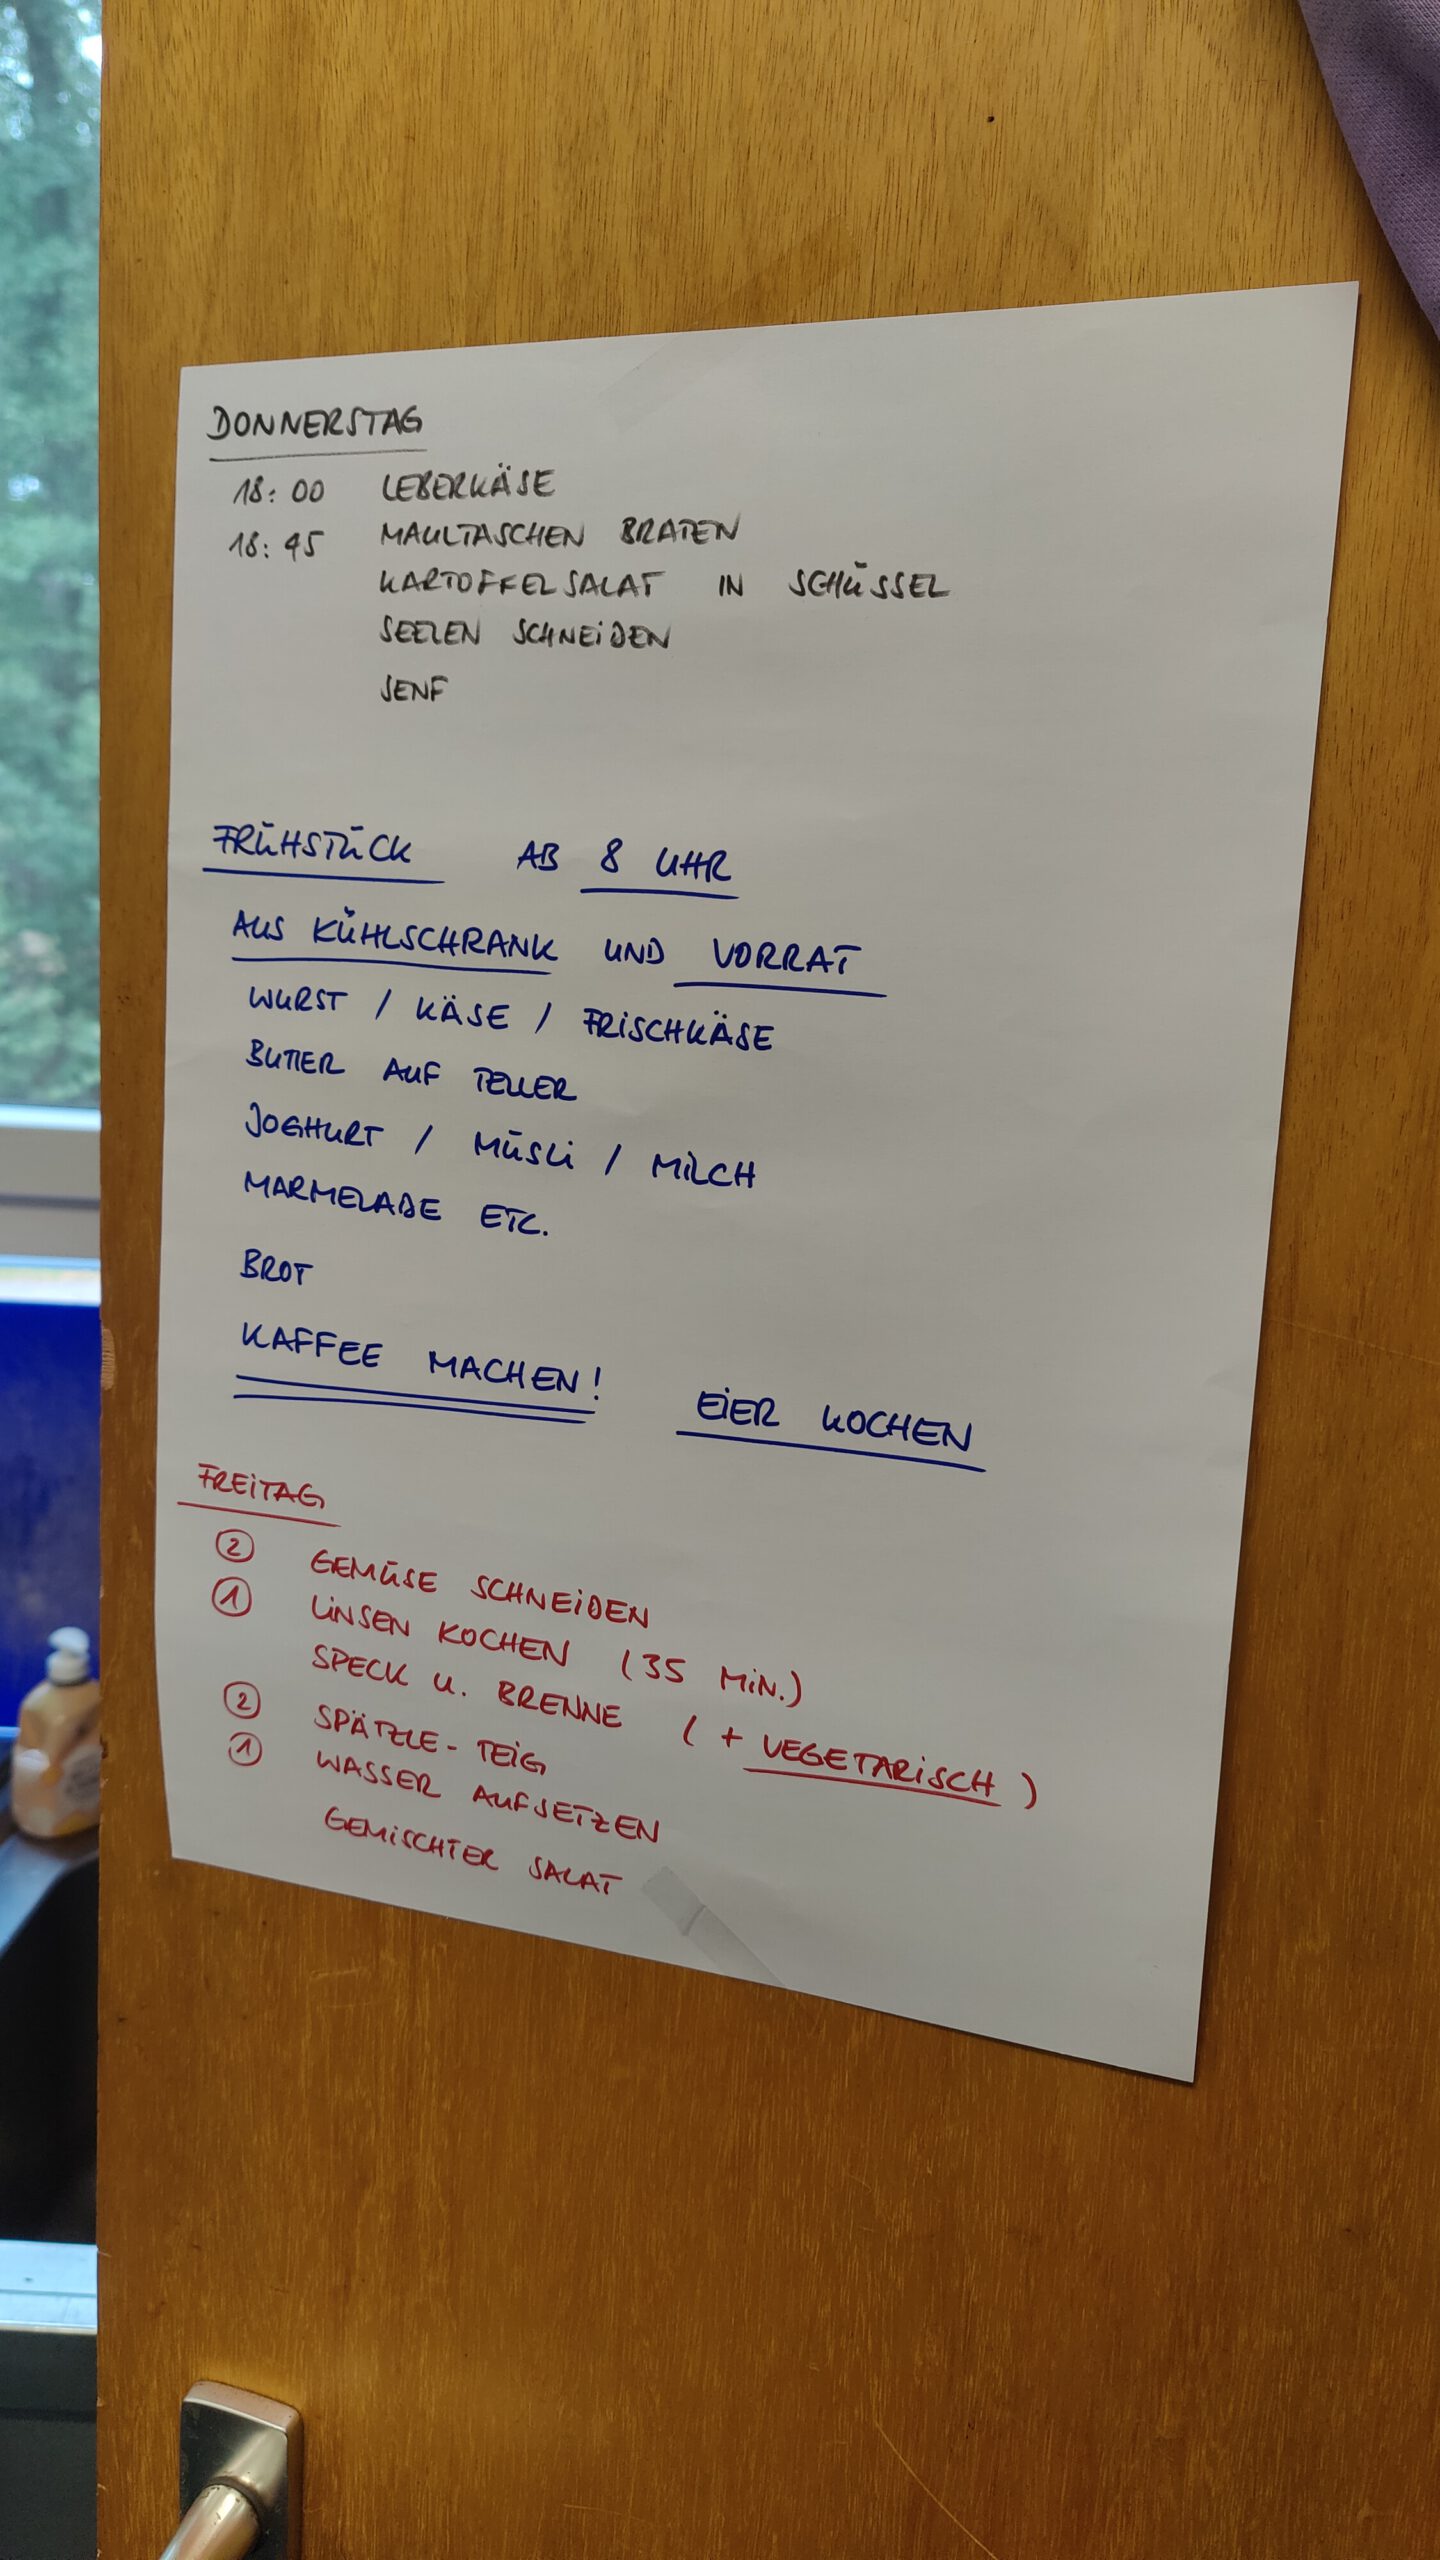 DONNERSTAG
18:00 LEBERKÄSE
18:45 MAULTASCHEN BRATEN
KARTOFFELSALAT IN SCHÜSSEL
SEELEN SCHNEIDEN
SENF
FRÜHSTÜCK AB 8 UHR
AUS KÜHLSCHRANK UND VORRAT
WURST / KÄSE / FRISCHKÄSE
BUTTER AUF TELLER
JOGHURT / MÜSLI / MILCH
MARMELADE ETC.
BROT
KAFFEE MACHEN! EIER KOCHEN
FREITAG
② GEMÜSE SCHNEIDEN
① LINSEN KOCHEN (35 MIN.)
SPECK U. BRENNE (+ VEGETARISCH)
② SPÄTZLE-TEIG
① WASSER AUFSETZEN
GEMISCHTER SALAT